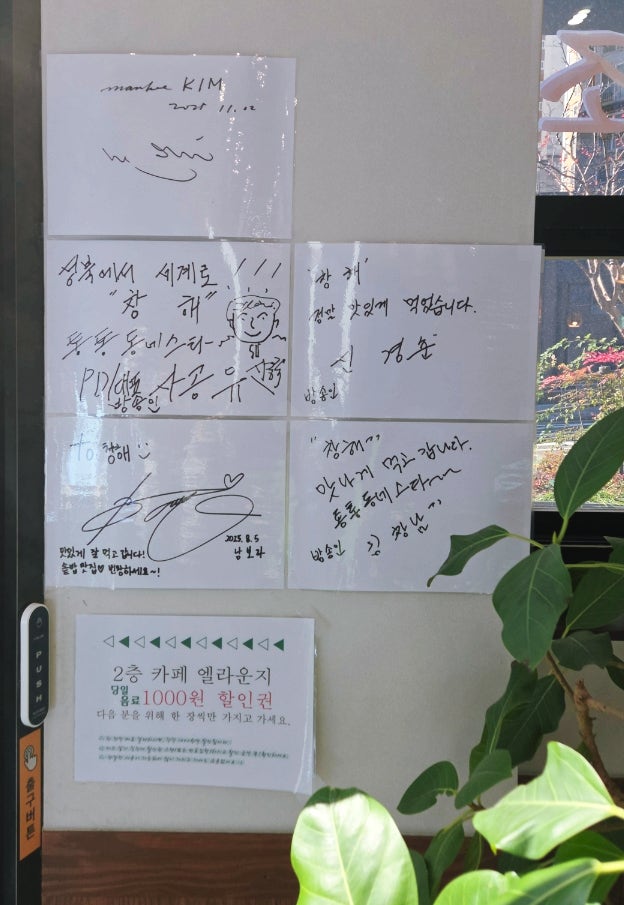 manhee KIM
2025 11.12
성북에서 세계로!!!
"창 해"
통통통 동네스타~
PD/대표
방송인 사공 유
'창 해'
정말 맛있게 먹었습니다.
신 경 준
방송인
to 창해
2025. 8. 5
맛있게 잘 먹고 갑니다! 남 보 라
솥밥 맛집♡ 번창하세요~!
"창해"
맛나게 먹고 갑니다.
통통 동네스타~~
방송인 김 창 남
2층 카페 엘라운지
당일
음료 1000원 할인권
다음 분을 위해 한 장씩만 가지고 가세요.
PUSH
출구버튼